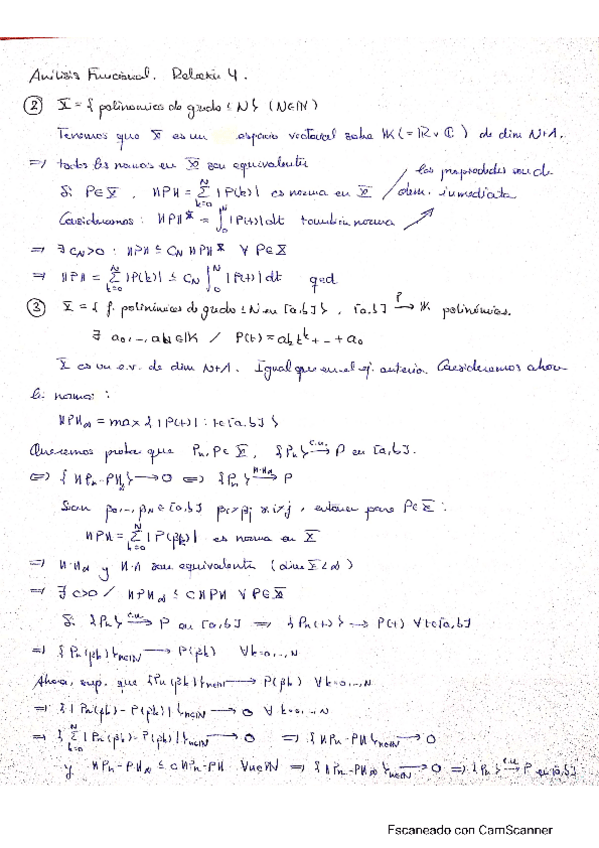 Análisis Funcional. Relación 4.
② X = { polinomios de grado ≤ N } (N∈ℕ)
Tenemos que X es un espacio vectorial sobre 𝕂 (= ℝ v ℂ) de dim N+1.
⇒ todas las normas en X son equivalentes
Si P∈X, ‖P‖ = Σ_{k=0}^{N} |P(k)| es norma en X / las propiedades son de dem. inmediata
Consideramos: ‖P‖* = ∫_0^N |P(t)| dt también norma
⇒ ∃ C_N > 0 : ‖P‖ ≤ C_N ‖P‖* ∀ P∈X
⇒ ‖P‖ = Σ_{k=0}^{N} |P(k)| ≤ C_N ∫_0^N |P(t)| dt qed
③ X = { f. polinómicas de grado ≤ N en [a,b] }, [a,b] →^P 𝕂 polinómica.
∃ a_0, …, a_N ∈ 𝕂 / P(t) = a_k t^k + … + a_0
X es un e.v. de dim N+1. Igual que en el ej. anterior. Consideramos ahora
la norma:
‖P‖_∞ = max { |P(t)| : t∈[a,b] }
Queremos probar que P_n, P ∈ X, {P_n} →^{c.u.} P en [a,b].
⇔ { ‖P_n - P‖_∞ } → 0 ⇔ {P_n} →^{‖·‖_∞} P
Sean β_0, …, β_N ∈ [a,b] β_i ≠ β_j si i≠j, entonces para P∈X:
‖P‖ = Σ_{k=0}^{N} |P(β_k)| es norma en X
⇒ ‖·‖_∞ y ‖·‖ son equivalentes (dim X < ∞)
⇒ ∃ c>0 / ‖P‖_∞ ≤ c ‖P‖ ∀ P∈X
Si {P_n} →^{c.u.} P en [a,b] ⇒ {P_n(t)} → P(t) ∀ t∈[a,b]
⇒ {P_n(β_k)}_{n∈ℕ} → P(β_k) ∀ k=0,…,N
Ahora, sup. que {P_n(β_k)}_{n∈ℕ} → P(β_k) ∀ k=0,…,N
⇒ { |P_n(β_k) - P(β_k)| }_{n∈ℕ} → 0 ∀ k=0,…,N
⇒ { Σ_{k=0}^{N} |P_n(β_k) - P(β_k)| }_{n∈ℕ} → 0 ⇒ { ‖P_n - P‖ }_{n∈ℕ} → 0
y ‖P_n - P‖_∞ ≤ c ‖P_n - P‖ ∀ n∈ℕ ⇒ { ‖P_n - P‖_∞ }_{n∈ℕ} → 0 ⇒ {P_n} →^{c.u.} P en [a,b]
Escaneado con CamScanner